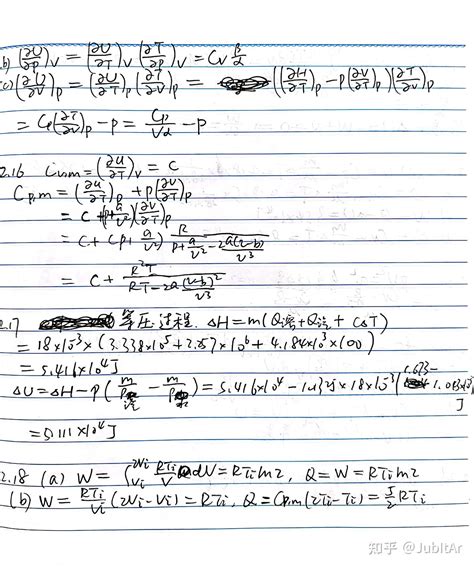 b) (∂U/∂p)_V = (∂U/∂T)_V (∂T/∂p)_V = C_V β/α
(c) (∂U/∂V)_p = (∂U/∂T)_p (∂T/∂V)_p = ((∂H/∂T)_p - p(∂V/∂T)_p)(∂T/∂V)_p
= C_p(∂T/∂V)_p - p = C_p/Vα - p
2.16 C_v,m = (∂u/∂T)_V = C
C_p,m = (∂u/∂T)_p + p(∂V/∂T)_p
= C + (p + a/v²)(∂V/∂T)_p
= C + (p + a/v²) R/(p + a/v² - 2a(v-b)/v³)
= C + R²T/(RT - 2a(v-b)²/v³)
2.17 等压过程. ΔH = m(Q + Q + CΔT)
= 18×10⁻³ × (3.338×10⁵ + 2.257×10⁶ + 4.184×10³×100)
= 5.416×10⁴ J
ΔU = ΔH - p(m/ρ汽 - m/ρ) = 5.416×10⁴ - 1.01325×18×10³(1.673 - 1.043×10 J
= 5.111×10⁴ J
2.18 (a) W = ∫_Vi^2Vi RTi/V dV = RTi ln2, Q = W = RTi ln2
(b) W = RTi/Vi (2Vi - Vi) = RTi, Q = C_p,m(2Ti - Ti) = 5/2 RTi
知乎 @JubItAr